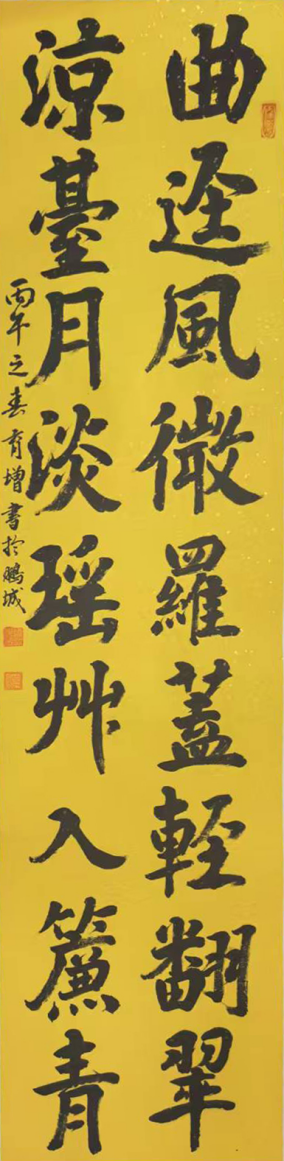 曲迳風微羅蓋輕翻翠
涼臺月淡瑶艸入簾青
丙午之春育增書於鵬城